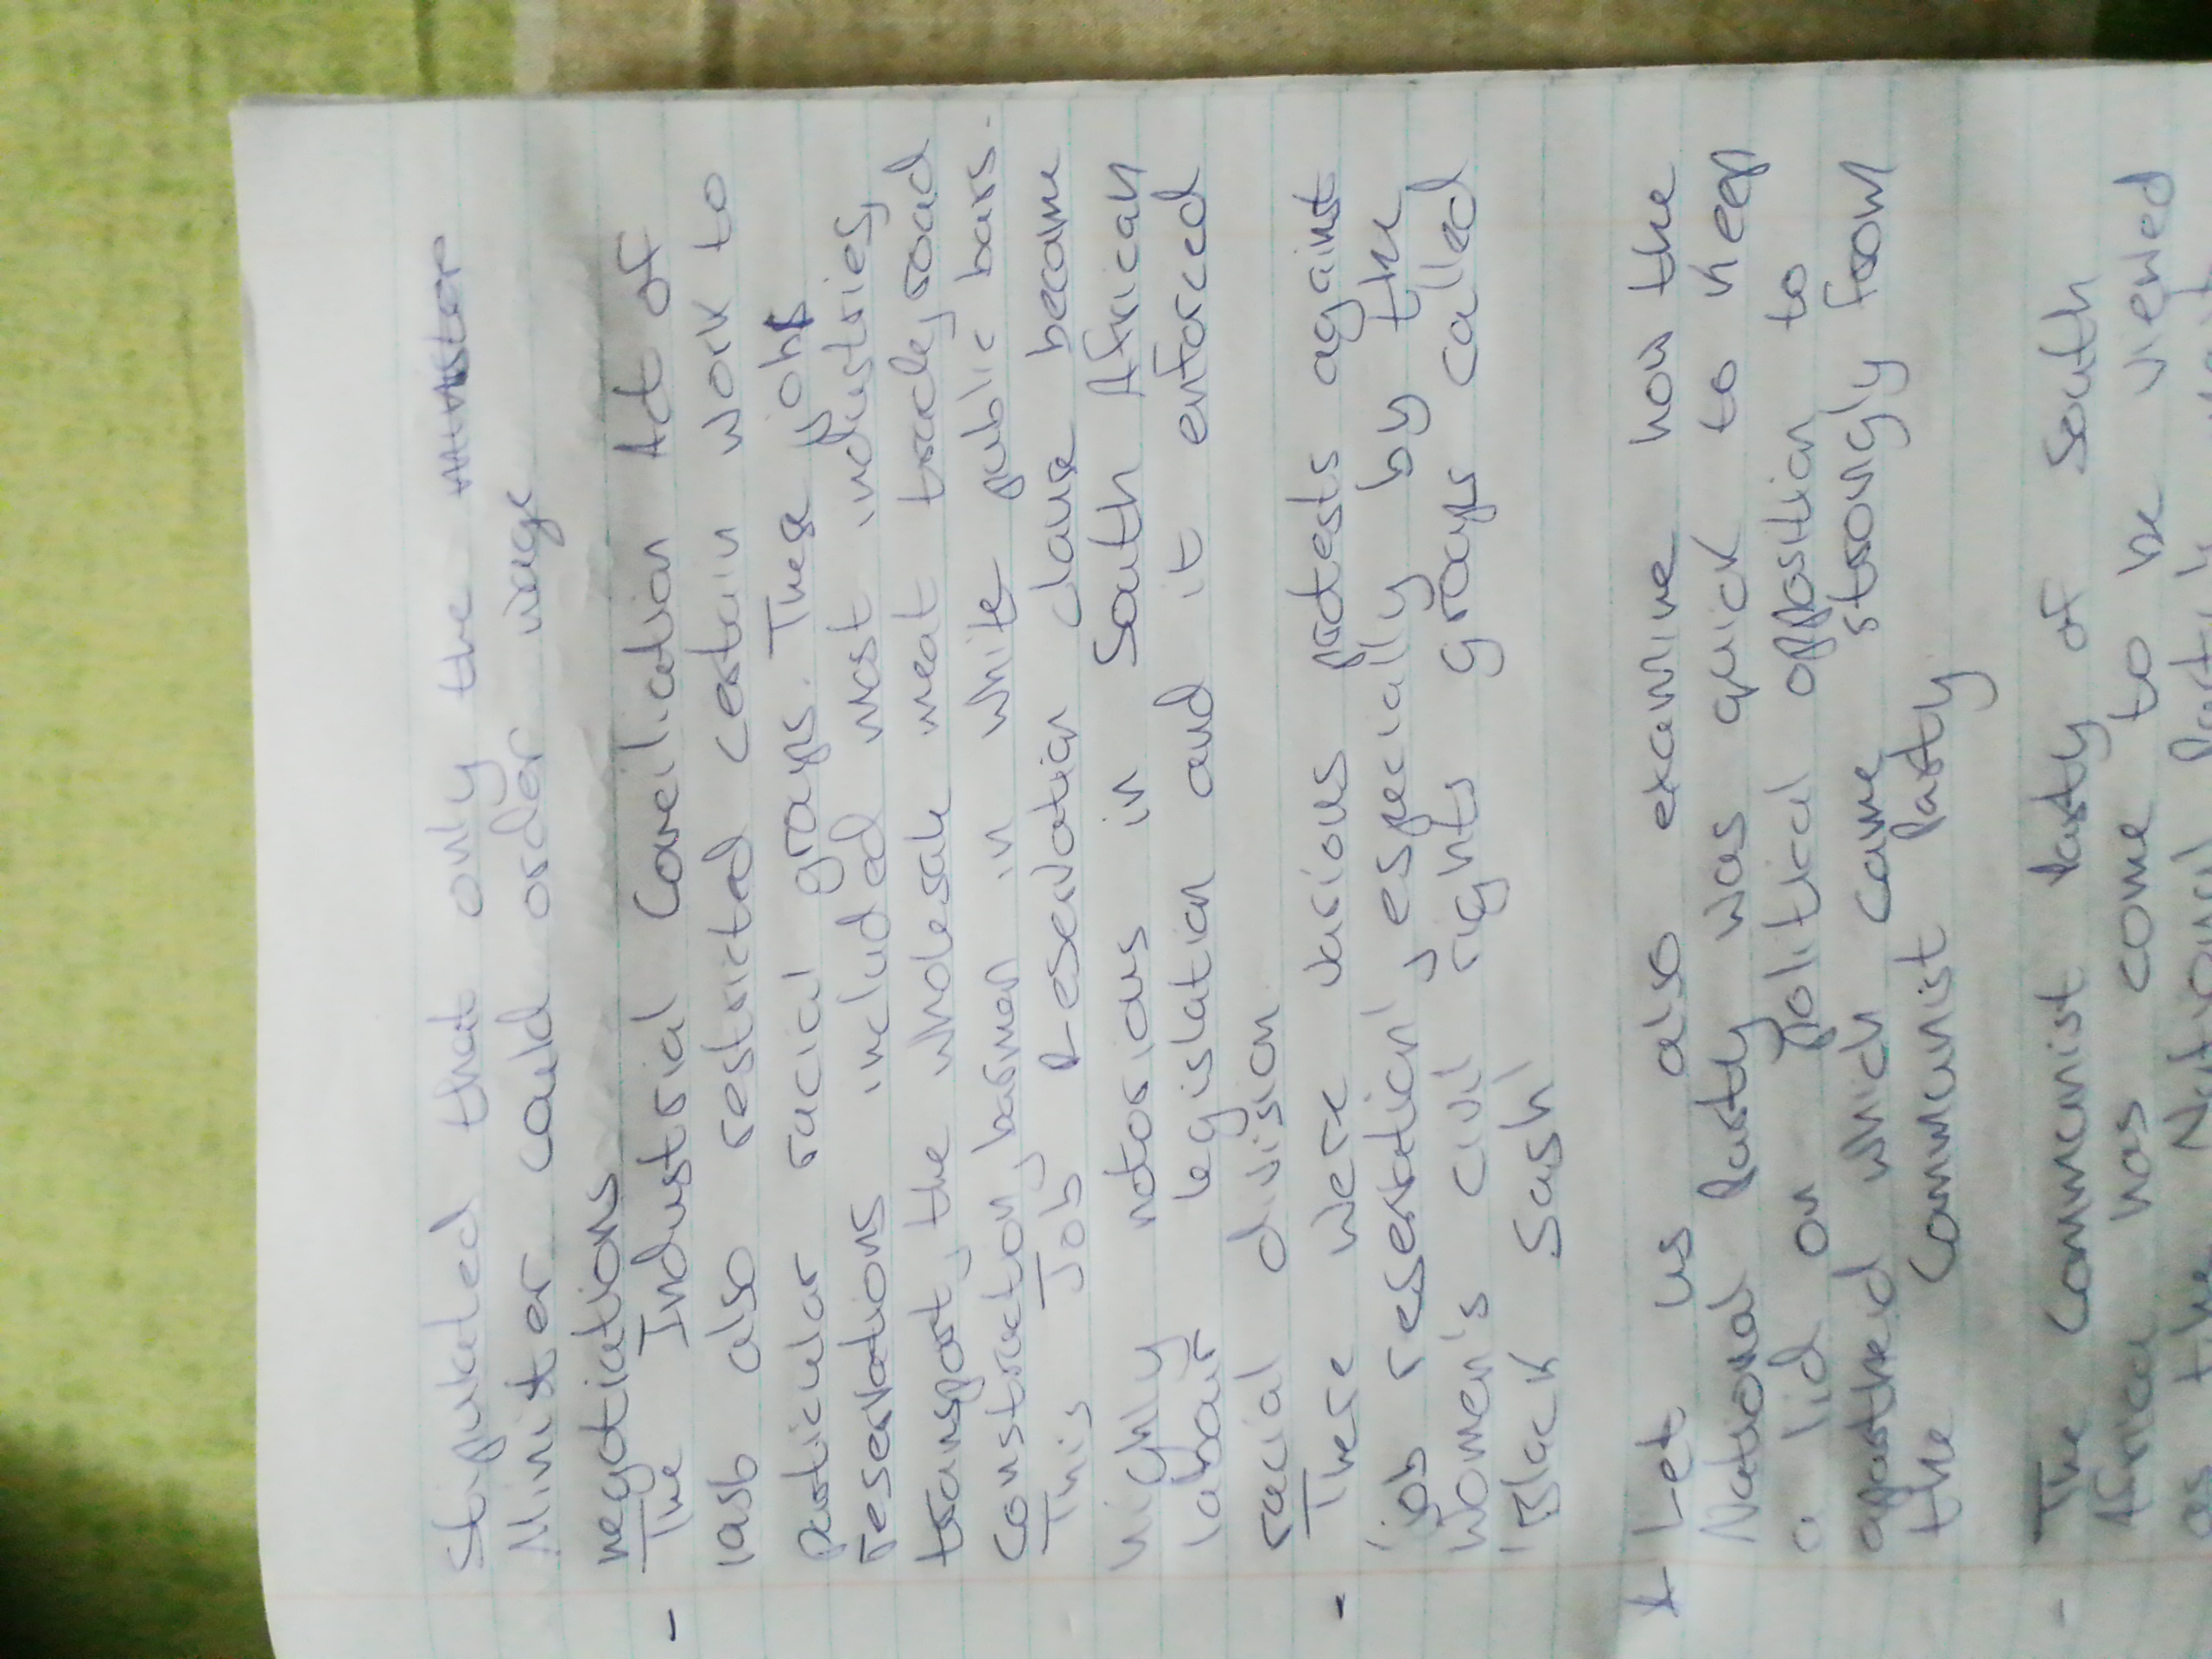 Stripulated that only the
Minister could order wage
negotiations
- The Industrial Conciliation Act of
1956 also restricted certain work to
particular racial groups. These job
reservations included most industries,
transport, the wholesale meat trade, road
construction, barmen in white public bars.
This Job Reservation clause became
highly notorious in South African
labour legislation and it enforced
racial division
- There were various protests against
'job reservation', especially by the
women's civil rights groups called
'Black Sash'
* Let us also examine how the
National Party was quick to keep
a lid on political opposition to
apartheid which came strongly from
the Communist Party
- The Communist Party of South
Africa has come to be viewed
as the National Party's